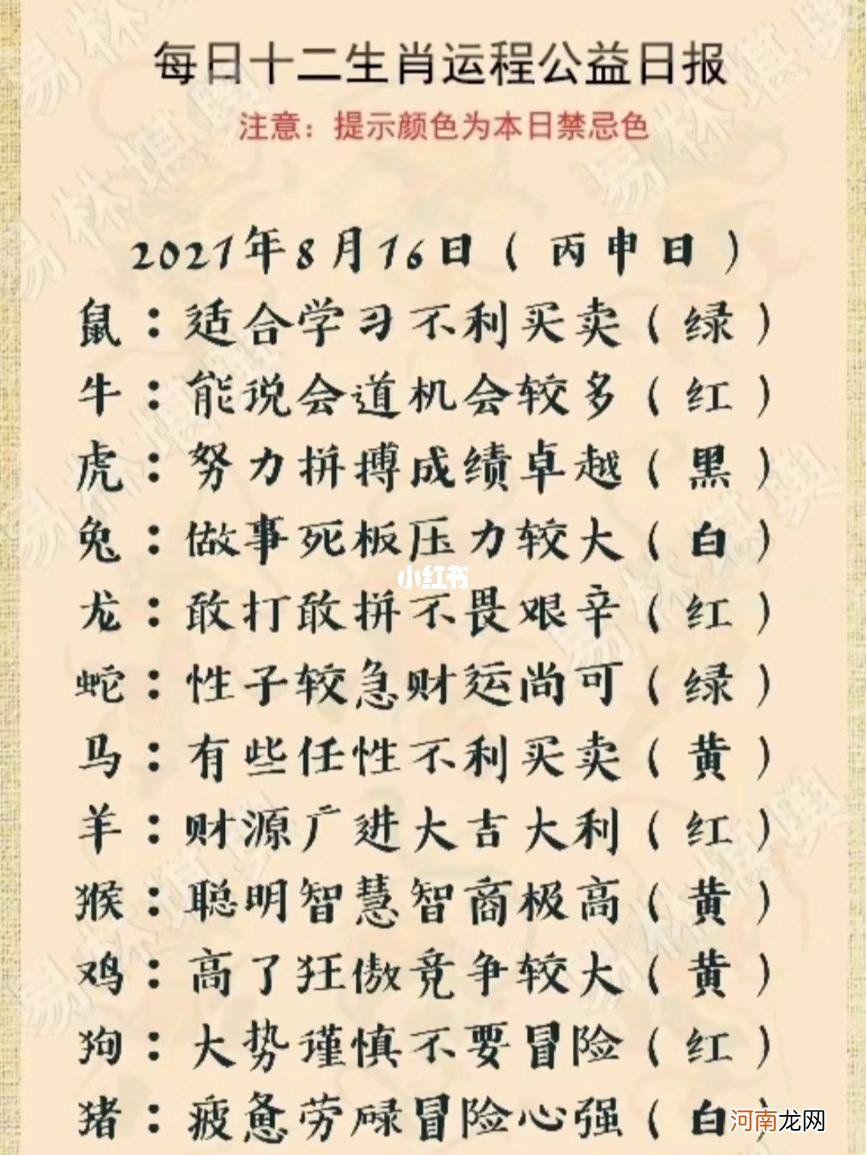 每日十二生肖运程公益日报
注意：提示颜色为本日禁忌色
2021年8月16日（丙申日）
鼠：适合学习不利买卖（绿）
牛：能说会道机会较多（红）
虎：努力拼搏成绩卓越（黑）
兔：做事死板压力较大（白）
小红书
龙：敢打敢拼不畏艰辛（红）
蛇：性子较急财运尚可（绿）
马：有些任性不利买卖（黄）
羊：财源广进大吉大利（红）
猴：聪明智慧智商极高（黄）
鸡：高了狂傲竞争较大（黄）
狗：大势谨慎不要冒险（红）
猪：疲惫劳碌冒险心强（白）
河南龙网
易林堪舆